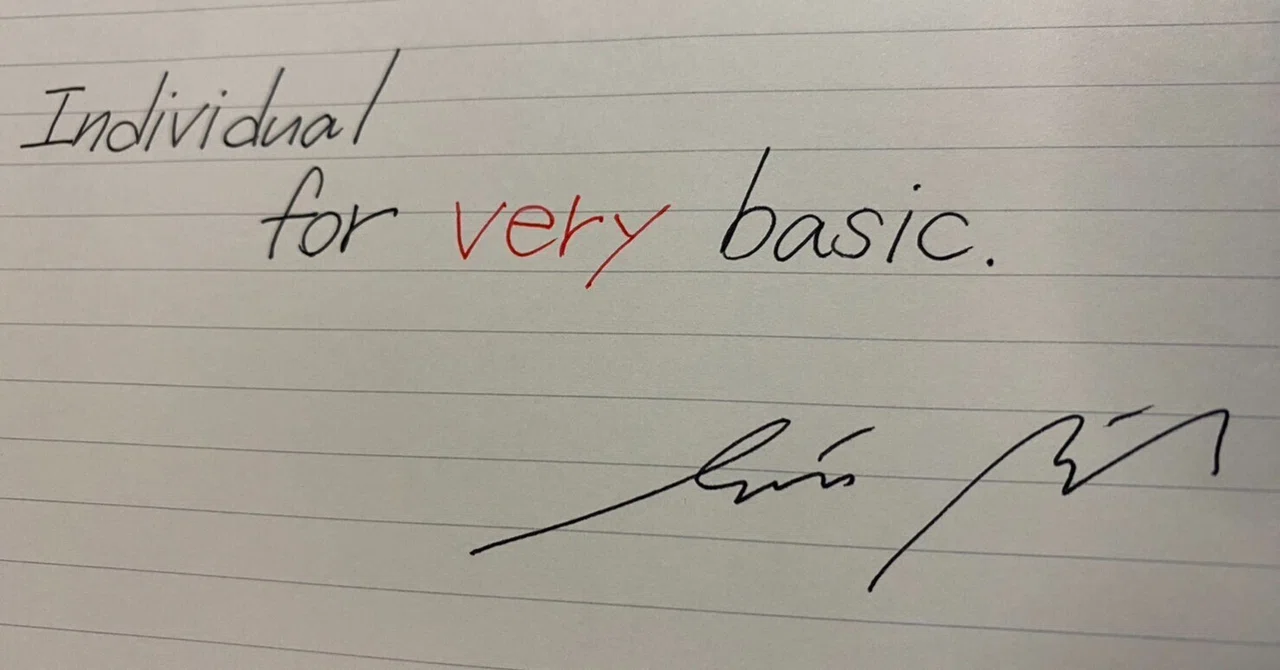 Individual
for very basic.